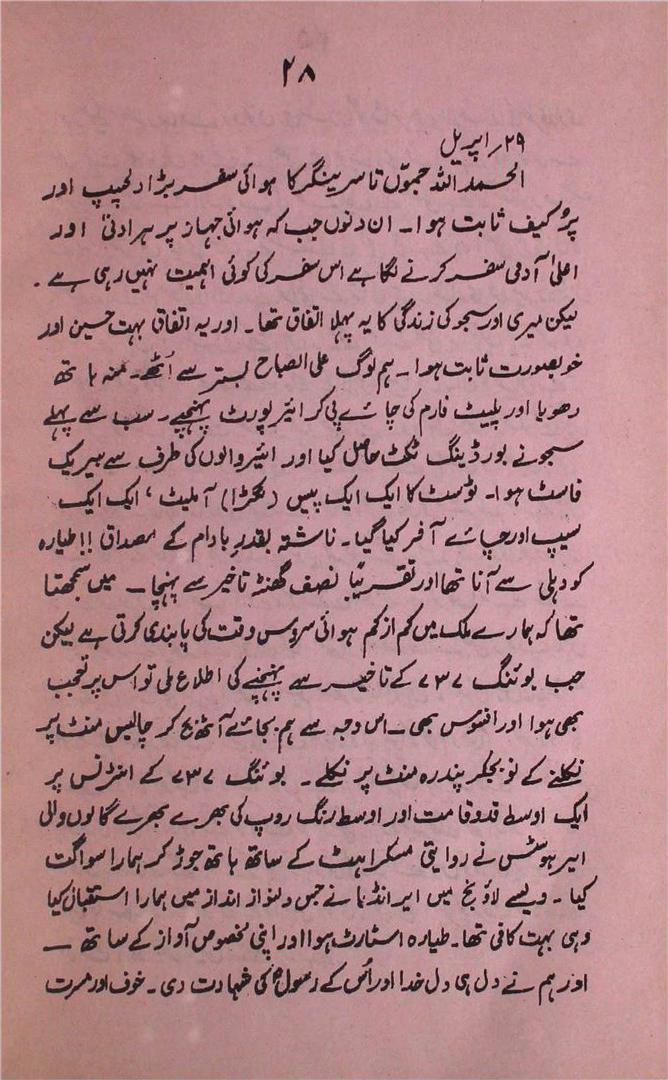 ۲۸
۲۹؍ اپریل
الحمداللہ جموّں تا سرینگر کا ہوائی سفر بڑا دلچسپ اور
پرُ کیف ثابت ہوا۔ ان دنوں جب کہ ہوائی جہاز پر ہر ادنیٰ اور
اعلیٰ آدمی سفر کرنے لگا ہے اس سفر کی کوئی اہمیت نہیں رہی ہے۔
لیکن میری اور سجو کی زندگی کا یہ پہلا اتفاق تھا۔ اور یہ اتفاق بہت حسین اور
خوبصورت ثابت ہوا۔ ہم لوگ علی الصباح بستر سے اُٹھے۔ منہ ہاتھ
دھویا اور پلیٹ فارم کی چائے پی کر ائیرپورٹ پہنچے۔ سب سے پہلے
سجو نے بورڈینگ ٹکٹ حاصل کیا اور ائیر والوں کی طرف سے بریک
فاسٹ ہوا۔ ٹوسٹ کا ایک ایک پیس (ٹکڑا) آملیٹ، ایک ایک
سیپ اور چائے آفر کیا گیا۔ ناشتہ بقدرِ بادام کے مصداق!! طیارہ
کو دہلی سے آنا تھا اور تقریباً نصف گھنٹہ تاخیر سے پہنچا۔ میں سمجھتا
تھا کہ ہمارے ملک میں کم از کم ہوائی سروس وقت کی پابندی کرتی ہے لیکن
جب بوئنگ ۷۳۷ کے تاخیر سے پہنچنے کی اطلاع ملی تو اس پر تعجب
بھی ہوا اور افسوس بھی۔ اس وجہ سے ہم بجائے آٹھ بج کر چالیس منٹ پر
نکلنے کے نو بجکر پندرہ منٹ پر نکلے۔ بوئنگ ۷۳۷ کے انٹرنس پر
ایک اوسط قدوقامت اور اوسط رنگ روپ کی بھرے بھرے گالوں والی
ایر ہوسٹس نے روایتی مسکراہٹ کے ساتھ ہاتھ جوڑ کر ہمارا سواگت
کیا۔ ویسے لاؤنج میں ایر انڈیا نے جس دلنواز انداز میں ہمارا استقبال کیا
وہی بہت کافی تھا۔ طیارہ اسٹارٹ ہوا اور اپنی مخصوص آواز کے ساتھ —
اور ہم نے دل ہی دل خدا اور اُس کے رسولؐ کی شہادت دی۔ خوف اور مسرت